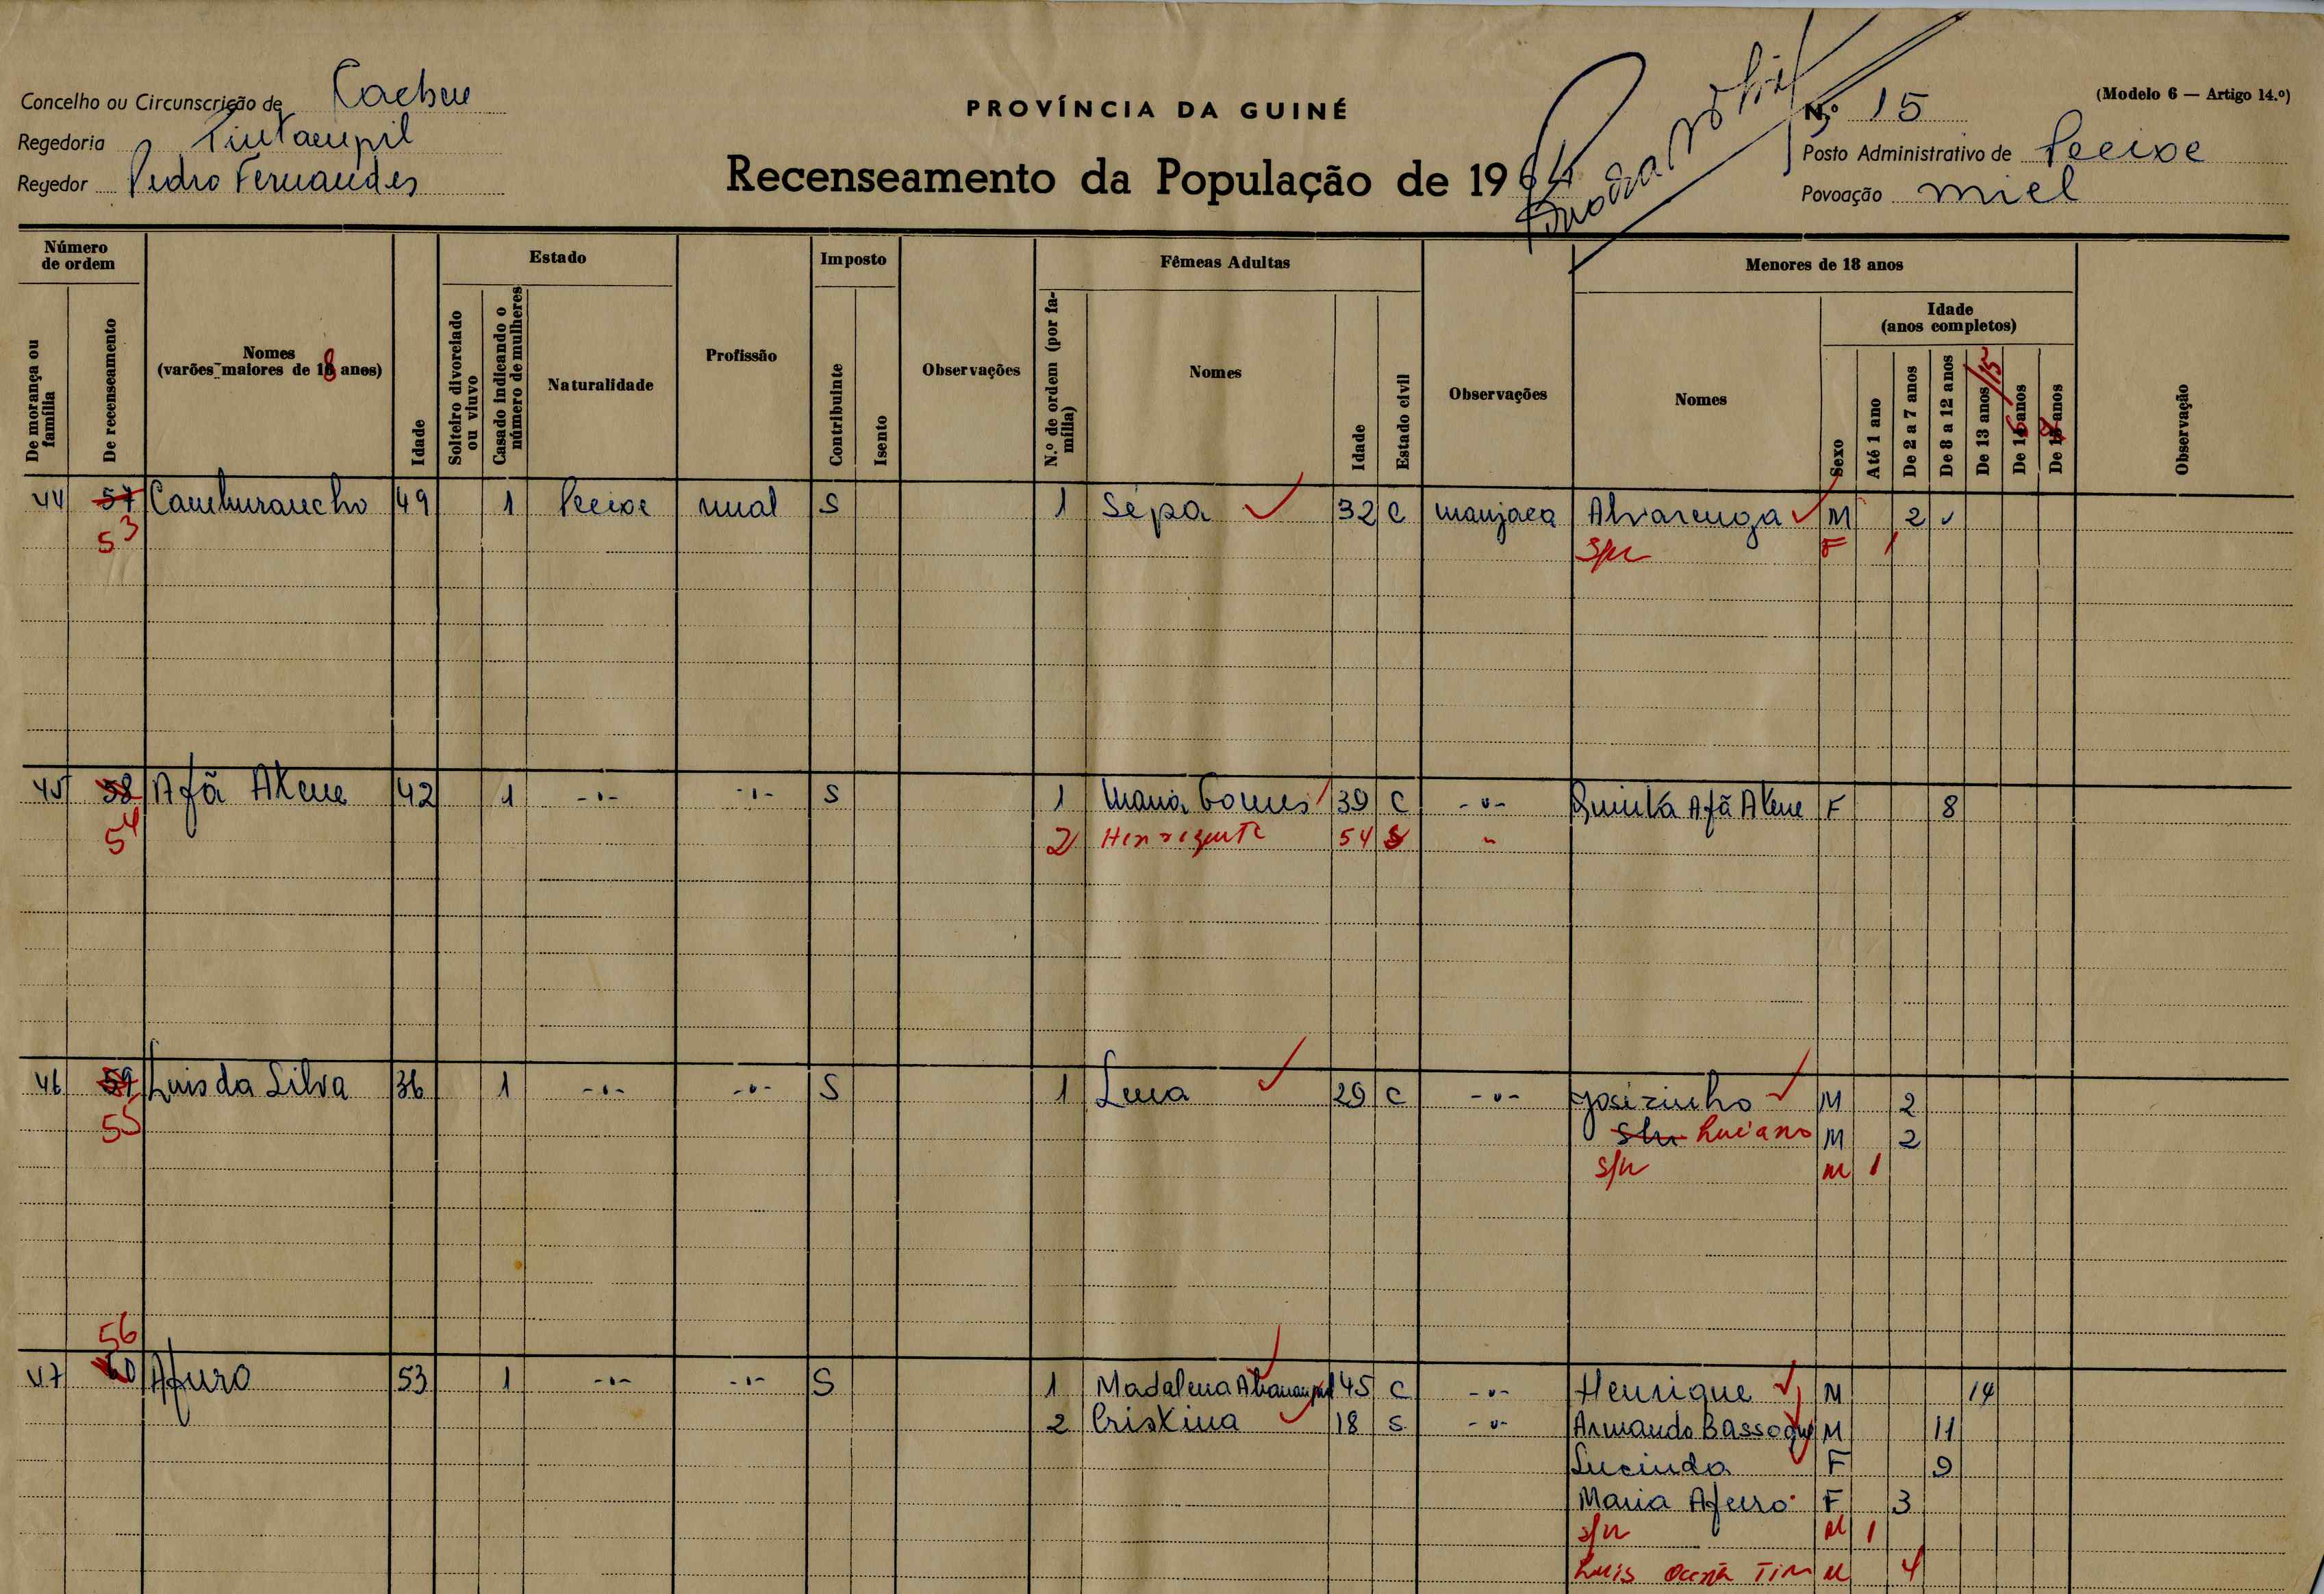 Concelho ou Circunscrição de Cacheu
Regedoria
Regedor Pedro Fernandes
PROVÍNCIA DA GUINÉ
Recenseamento da População de 1964
(Modelo 6 — Artigo 14.º)
N.º 15
Posto Administrativo de Pecixe
Povoação Miel
Número de ordem
De morança ou família
De recenseamento
Nomes
(varões maiores de 18 anos)
Idade
Estado
Solteiro divorciado ou viuvo
Casado indicando o número de mulheres
Naturalidade
Profissão
Imposto
Contribuinte
Isento
Observações
Fêmeas Adultas
N.º de ordem (por família)
Nomes
Idade
Estado civil
Observações
Menores de 18 anos
Nomes
Sexo
Idade
(anos completos)
Até 1 ano
De 2 a 7 anos
De 8 a 12 anos
De 13 anos /15
De 16 anos
De 17 anos
Observação
44 57 Camburancho 49 1 Pecixe rural S 1 Sépa 32 C manjaca Alvarenga M 2
53 s/n F 1
45 58 Afã Atene 42 1 -"- -"- S 1 Maria Gomes 39 C -"- Quinta Afã Atene F 8
54 2 54 S "
46 59 Luis da Silva 36 1 -"- -"- S 1 Lena 29 C -"- Josézinho M 2
55 s/n Luciano M 2
s/n M 1
56
47 60 Afuro 53 1 -"- -"- S 1 Madalena 45 C -"- Henrique M 14
2 Cristina 18 S -"- Armando M 11
Lucinda F 9
Maria Afuro F 3
s/n M 1
Luis M 4